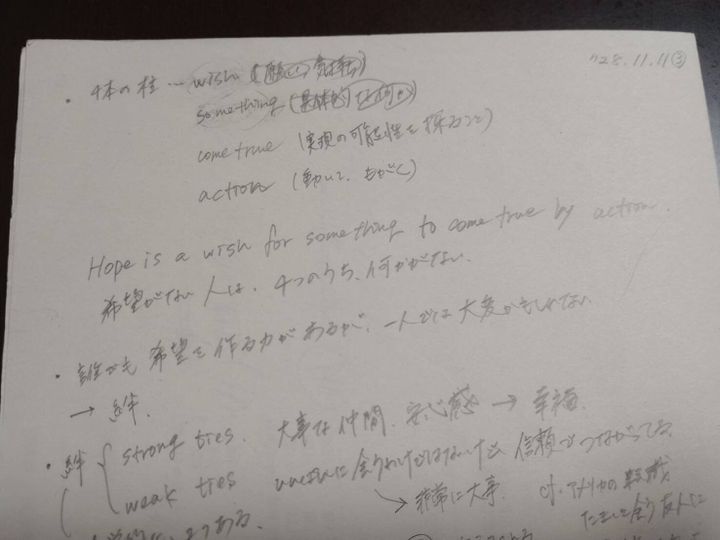 '28.11.11③
・4本の柱 … wish (願い, 気持ち)
something (具体的な何か)
come true (実現の可能性を探ること)
action (動いて、もがく)
Hope is a wish for something to come true by action.
希望がない人は、4つのうち、何かがない。
・誰でも希望を作る力があるが、一人では大変かもしれない
→ 絆.
・絆 { strong ties. 大事な仲間. 安心感 → 幸福.
weak ties に会うわけではないけど、信頼でつながってる.
↘ 非常に大事. cf. アメリカの転職
2つある. たまに会う友人に